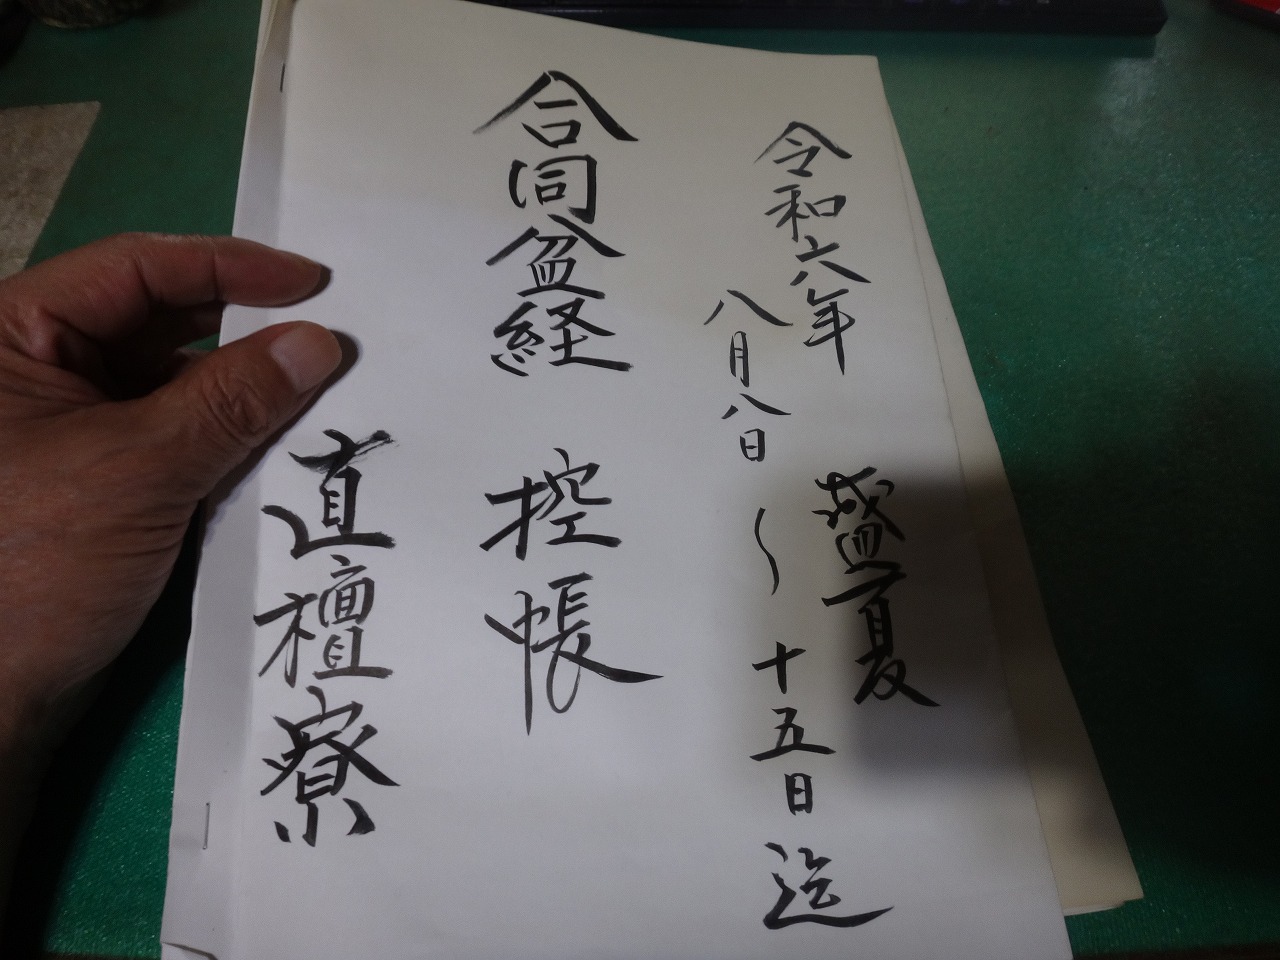 令和六年 盛夏
八月八日〜十五日迄
合同盆経 控帳
直檀寮